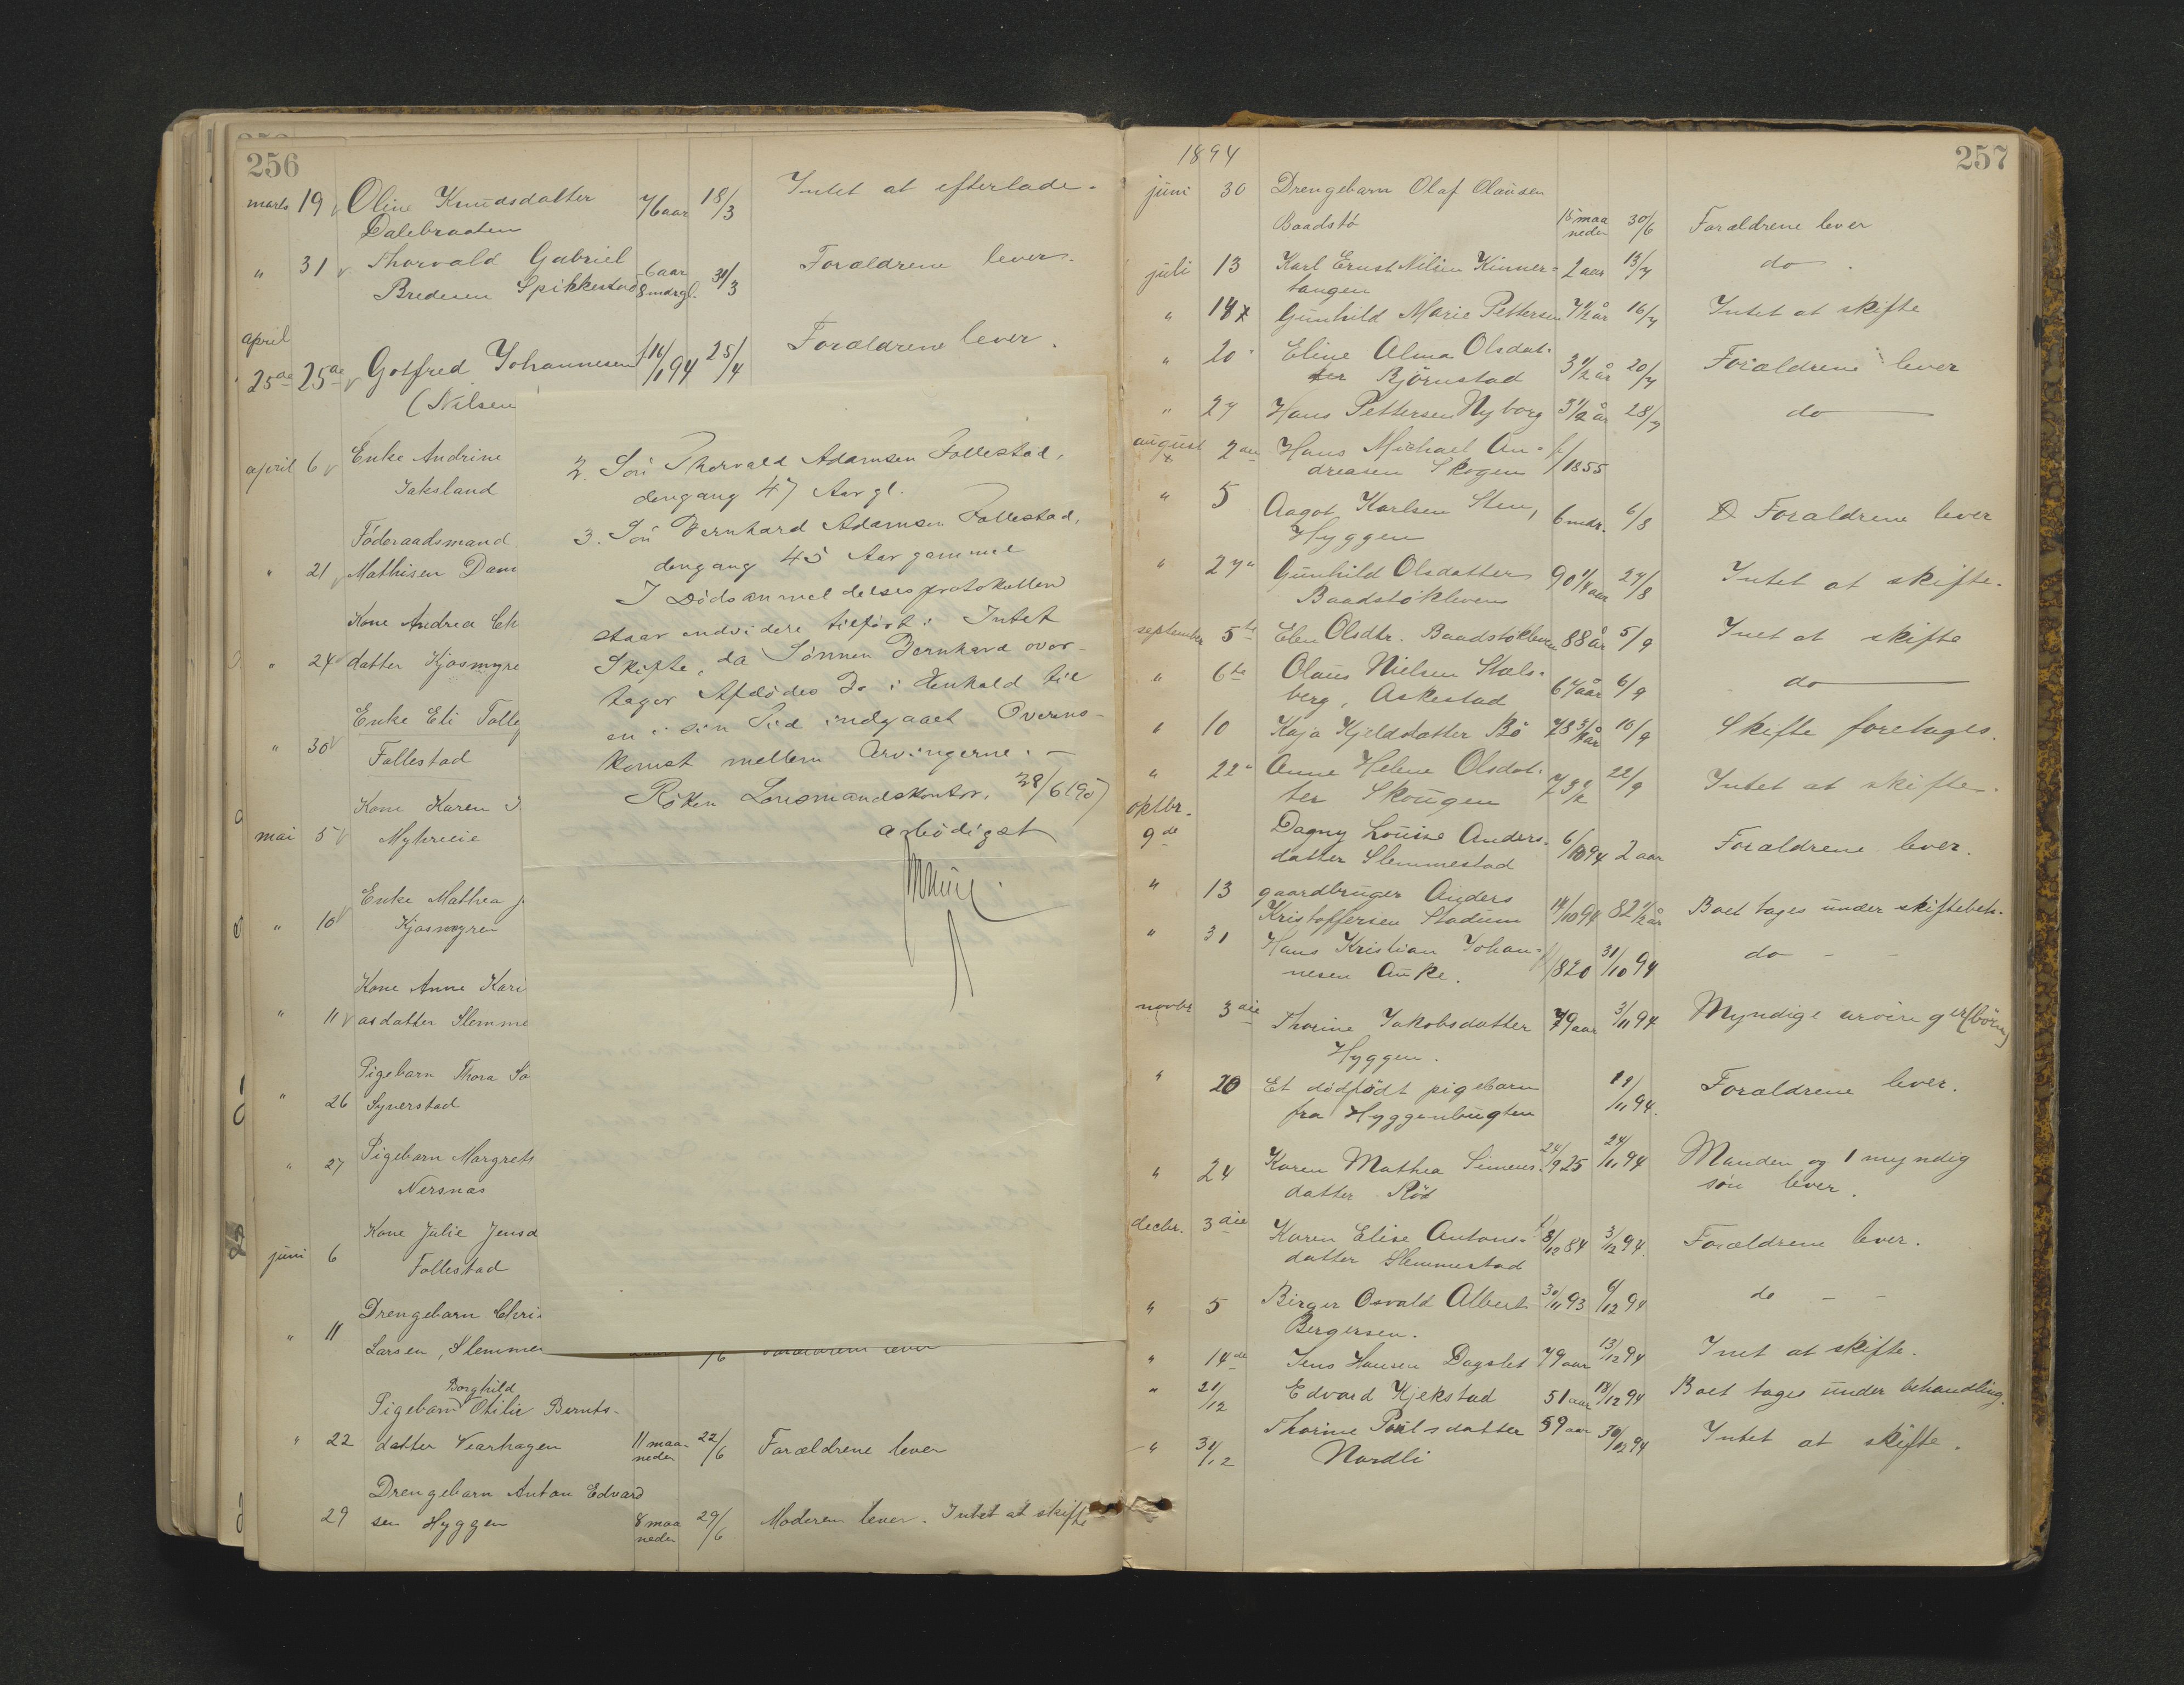 256
marts 19 Oline Knudsdatter 76 aar 18/3 Intet at efterlade.
Dalebraaten
" 31 Thorvald Gabriel 6 aar 31/3 Forældrene lever.
Bredesen Spikkestad 8 mdr gl.
april
25de 25de Gotfred Johannesen f 16/1 94 25/4 Forældrene lever.
(Nilsen
april 6 Enke Andrine
Jaksland
Föderaadsmand
" 21 Mathisen Dam
Kone Andrea Ch
" 24 datter Kjosmyre
Enke Eli Folle
" 30 Follestad
Kone Karen
mai 5 Myhreeie
Enke Mathea
" 10 Kjosmyren
Kone Anne Kari
" 11 asdatter Slemme
Pigebarn Thora So
" 26 Syverstad
" 27 Pigebarn Margreth
Nersnæs
Kone Julie Jensd
juni 6 Follestad
Drengebarn Chri
" 11 Larsen, Slemme /6 Forældrene lever
Borghild
Pigebarn Otilie Bernts-
" 22 datter Vearhagen 11 maa- neder 22/6 Forældrene lever
Drengebarn Anton Edvard
29 sen Hyggen 8 maa neder 29/6 Moderen lever. Intet at skifte
2. Sön Thorvald Adamsen Follestad,
dengang 47 Aar gl.
3. Sön Bernhard Adamsen Follestad,
dengang 45 Aar gammel
I Dödsanmeldelsesprotokollen
staar endvidere tilfört: Intet
Skifte, da Sönnen Bernhard over-
tager Afdödes Bo i Henhold til
en i sin Tid indgaaet Overens-
komst mellem Arvingerne. —
Röken Lensmandskontor, 28/6 1907
ærbödigst
1894 257
juni 30 Drengebarn Olaf Olausen
Baadstö 15 maa neder 30/6 Forældrene lever
juli 13 Karl Ernst Nilsen Kinner- 2 aar 13/7 do.
tangen
" 18 Gunhild Marie Pettersen 7 1/2 år 16/7 Intet at skifte
" 20 Eline Alma Olsdat- 3 1/2 år 20/7 Forældrene lever
ter Björnstad
" 27 Hans Pettersen Nyborg 3 1/2 år 28/7 do
august 2en Hans Michael An- f/1855
dreasen Skogen
" 5 Aagot Karlsen Sten, 6 mdr. 6/8 Forældrene lever
Hyggen
" 27 Gunhild Olsdatter 90 1/4 aar 27/8 Intet at skifte.
Baadstökleven
september 5te Elen Olsdtr. Baadstökleven 88 år 5/9 Inet at skifte
" 6te Olaus Nielsen Stols- 67 aar 6/9 do
berg, Askestad
" 10 Kaja Kjeldsdatter Bö 78 3/4 år 10/9 Skifte foretages.
" 22 Anne Helene Olsdat- 73 1/2 22/9 Intet at skifte.
ter Skougen
oktbr.
9de Dagny Louise Anders- 6/10 94 2 aar Forældrene lever.
datter Slemmestad
" 13 gaardbruger Anders 14/10 94 82 1/2 år Boet tages under skiftebeh.
Kristoffersen Stadum
" 31 Hans Kristian Johan- f/820 31/10 94 do - -
nesen Auke.
novbr 3die Thorine Jakobsdatter 79 aar 3/11 94 Myndige arvinger (börn)
Hyggen.
" 20 Et dödfödt pigebarn 19/11 94. Forældrene lever.
fra Hyggenbugten
" 24 Karen Mathea Simens- 24/9 25 24/11 94 Manden og 1 myndig
datter Röd sön lever.
decbr. 3die Karen Elise Antons- f 8/12 84 3/12 94. Forældrene lever.
datter Slemmestad
" 5 Birger Osvald Albert 30/11 93 6/12 94 do - -
Bergersen.
" 14de Jens Hansen Dagslet 79 aar 13/12 94 Inet at skifte.
" 21/12 Edvard Kjekstad 51 aar 18/12 94 Boet tages under behandling.
" 31/12 Thorine Poulsdatter 59 aar 30/12 94 Intet at skifte.
Nordli